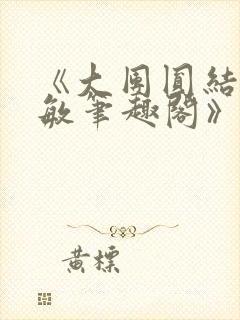 《大团圆结
敏笔趣阁》
黄標